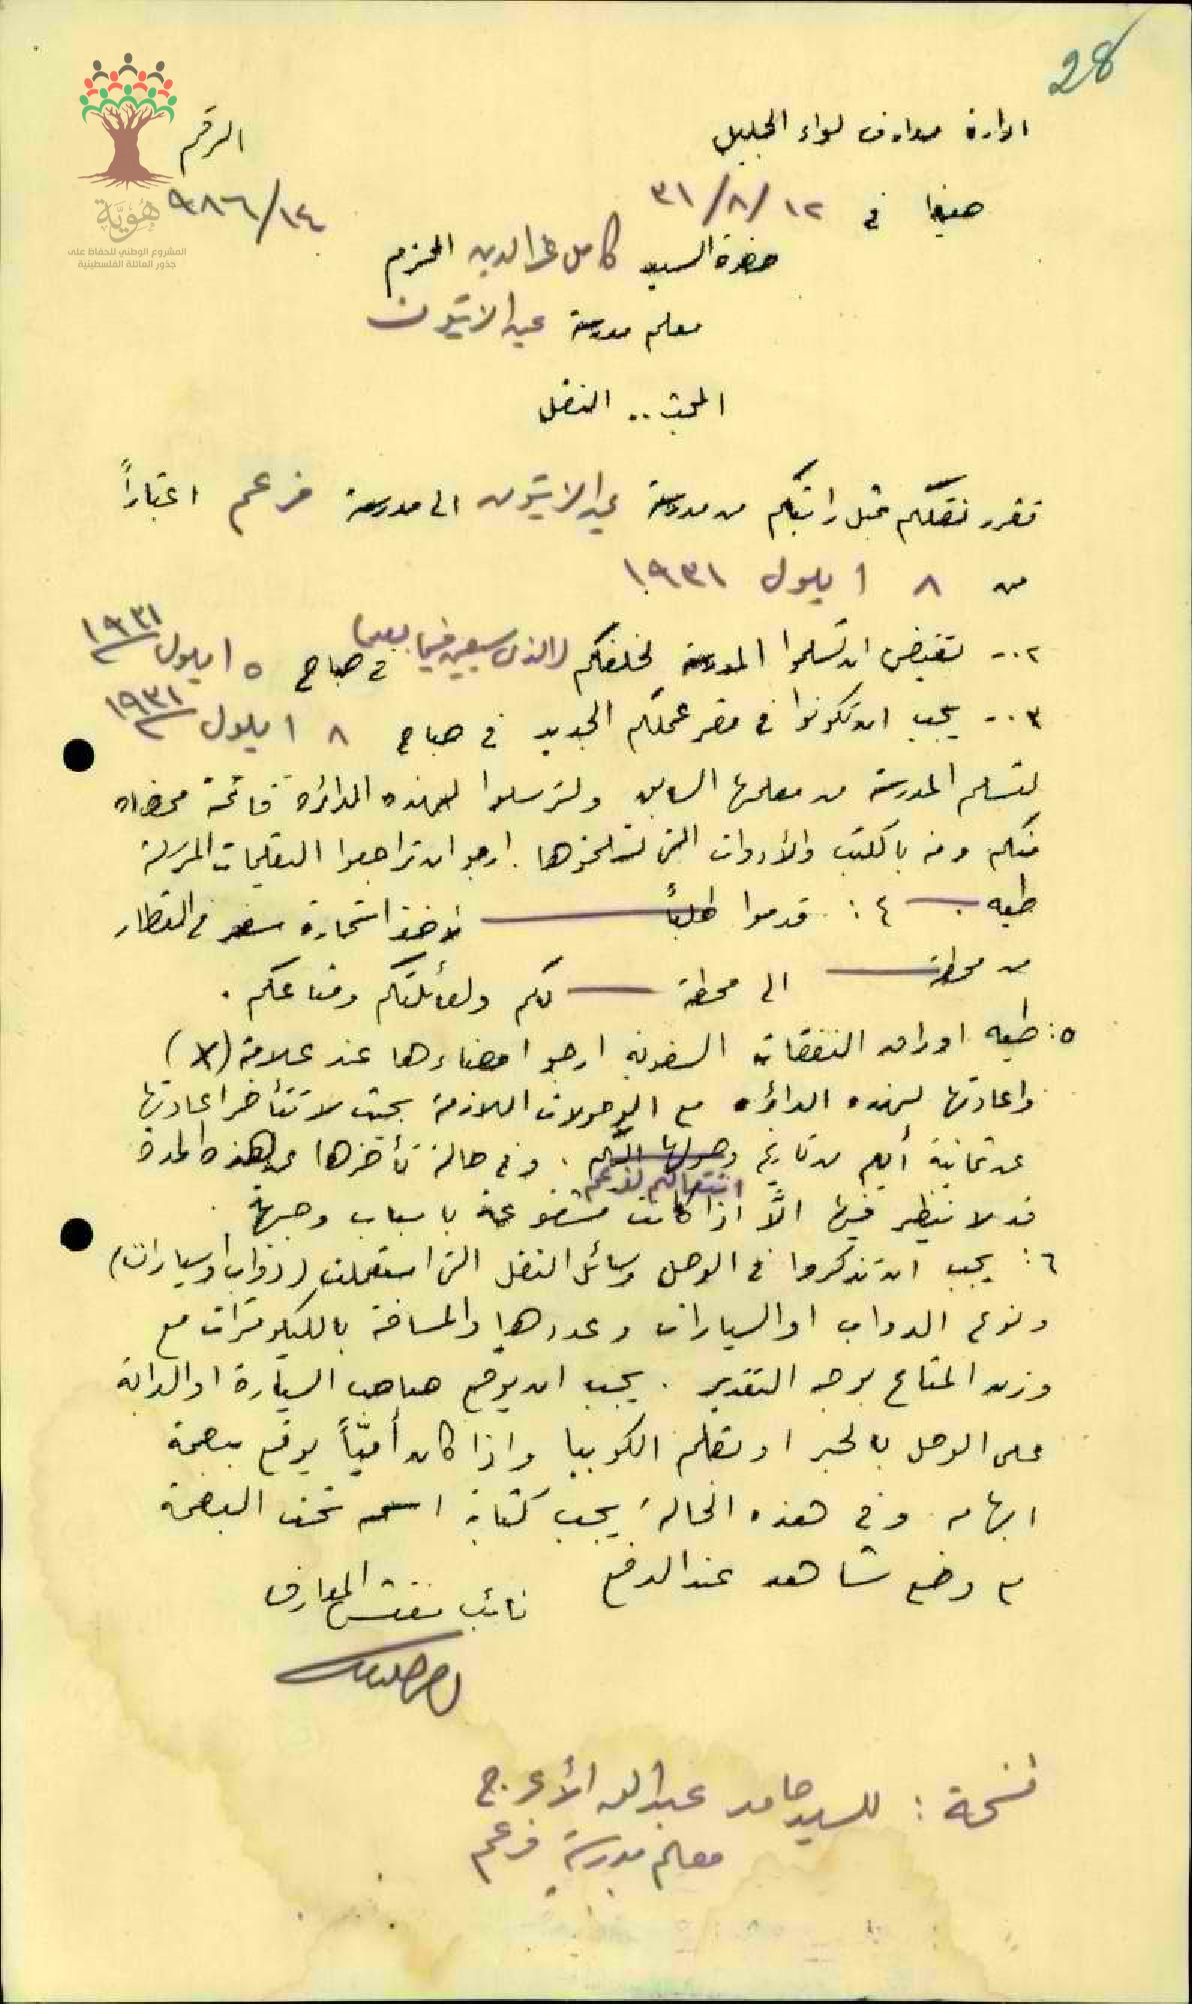 28
ادارة معارف لواء الجليل
الرقم
حيفا في ١٢/٨/٣١
٩٨٦/١٤
هُوِيَّة
المشروع الوطني للحفاظ على
جذور العائلة الفلسطينية
حضرة السيد كامل عز الدين المحترم
معلم مدرسة عين الزيتون
المبحث .. النقل
تقرر نقلكم بمثل راتبكم من مدرسة عين الزيتون الى مدرسة فرعم اعتباراً
من ٨ ايلول ١٩٣١
٢ - يقتضي ان تسلموا المدرسة لخلفكم الذي سيعين فيما بعد في صباح ٥ ايلول ١٩٣١
٣ - يجب ان تكونوا في مقر عملكم الجديد في صباح ٨ ايلول ١٩٣١
لتسلم المدرسة من معلمها السابق ولترسلوا لهذه الدائرة قائمة ممضاة
منكم ومنه بالكتب والأدوات التي تسلمتموها. ارجو ان تراجعوا التعليمات المرسلة
طيه ٤: قدموا طلباً لأخذ استمارة سفر في القطار
من محطة الى محطة لكم ولعائلتكم ومتاعكم.
٥: طيه اوراق النفقات السفرية ارجو امضاءها عند علامة (X)
واعادتها لهذه الدائرة مع الوصولات اللازمة بحيث لا تتأخر اعادتها
عن ثمانية أيام من تاريخ وصولها اليكم. وفي حالة تأخرها عن هذه المدة
انتقالكم لفرعم
قد لا ينظر فيها الّا اذا كانت مشفوعة باسباب وجيهة.
٦: يجب ان تذكروا في الوصل وسائل النقل التي استعملت (دواب او سيارات)
ونوع الدواب او السيارات وعددها والمسافة بالكيلومترات مع
وزن المتاع بوجه التقدير. يجب ان يوقع صاحب السيارة او الدابة
على الوصل بالحبر او بقلم الكوبيا واذا كان أميّاً يوقع ببصمة
ابهامه وفي هذه الحالة يجب كتابة اسمه تحت البصمة
مع وضع شاهد عند الدفع
نائب مفتش المعارف
نسخة: للسيد حامد عبدالله الأعرج
معلم مدرسة فرعم